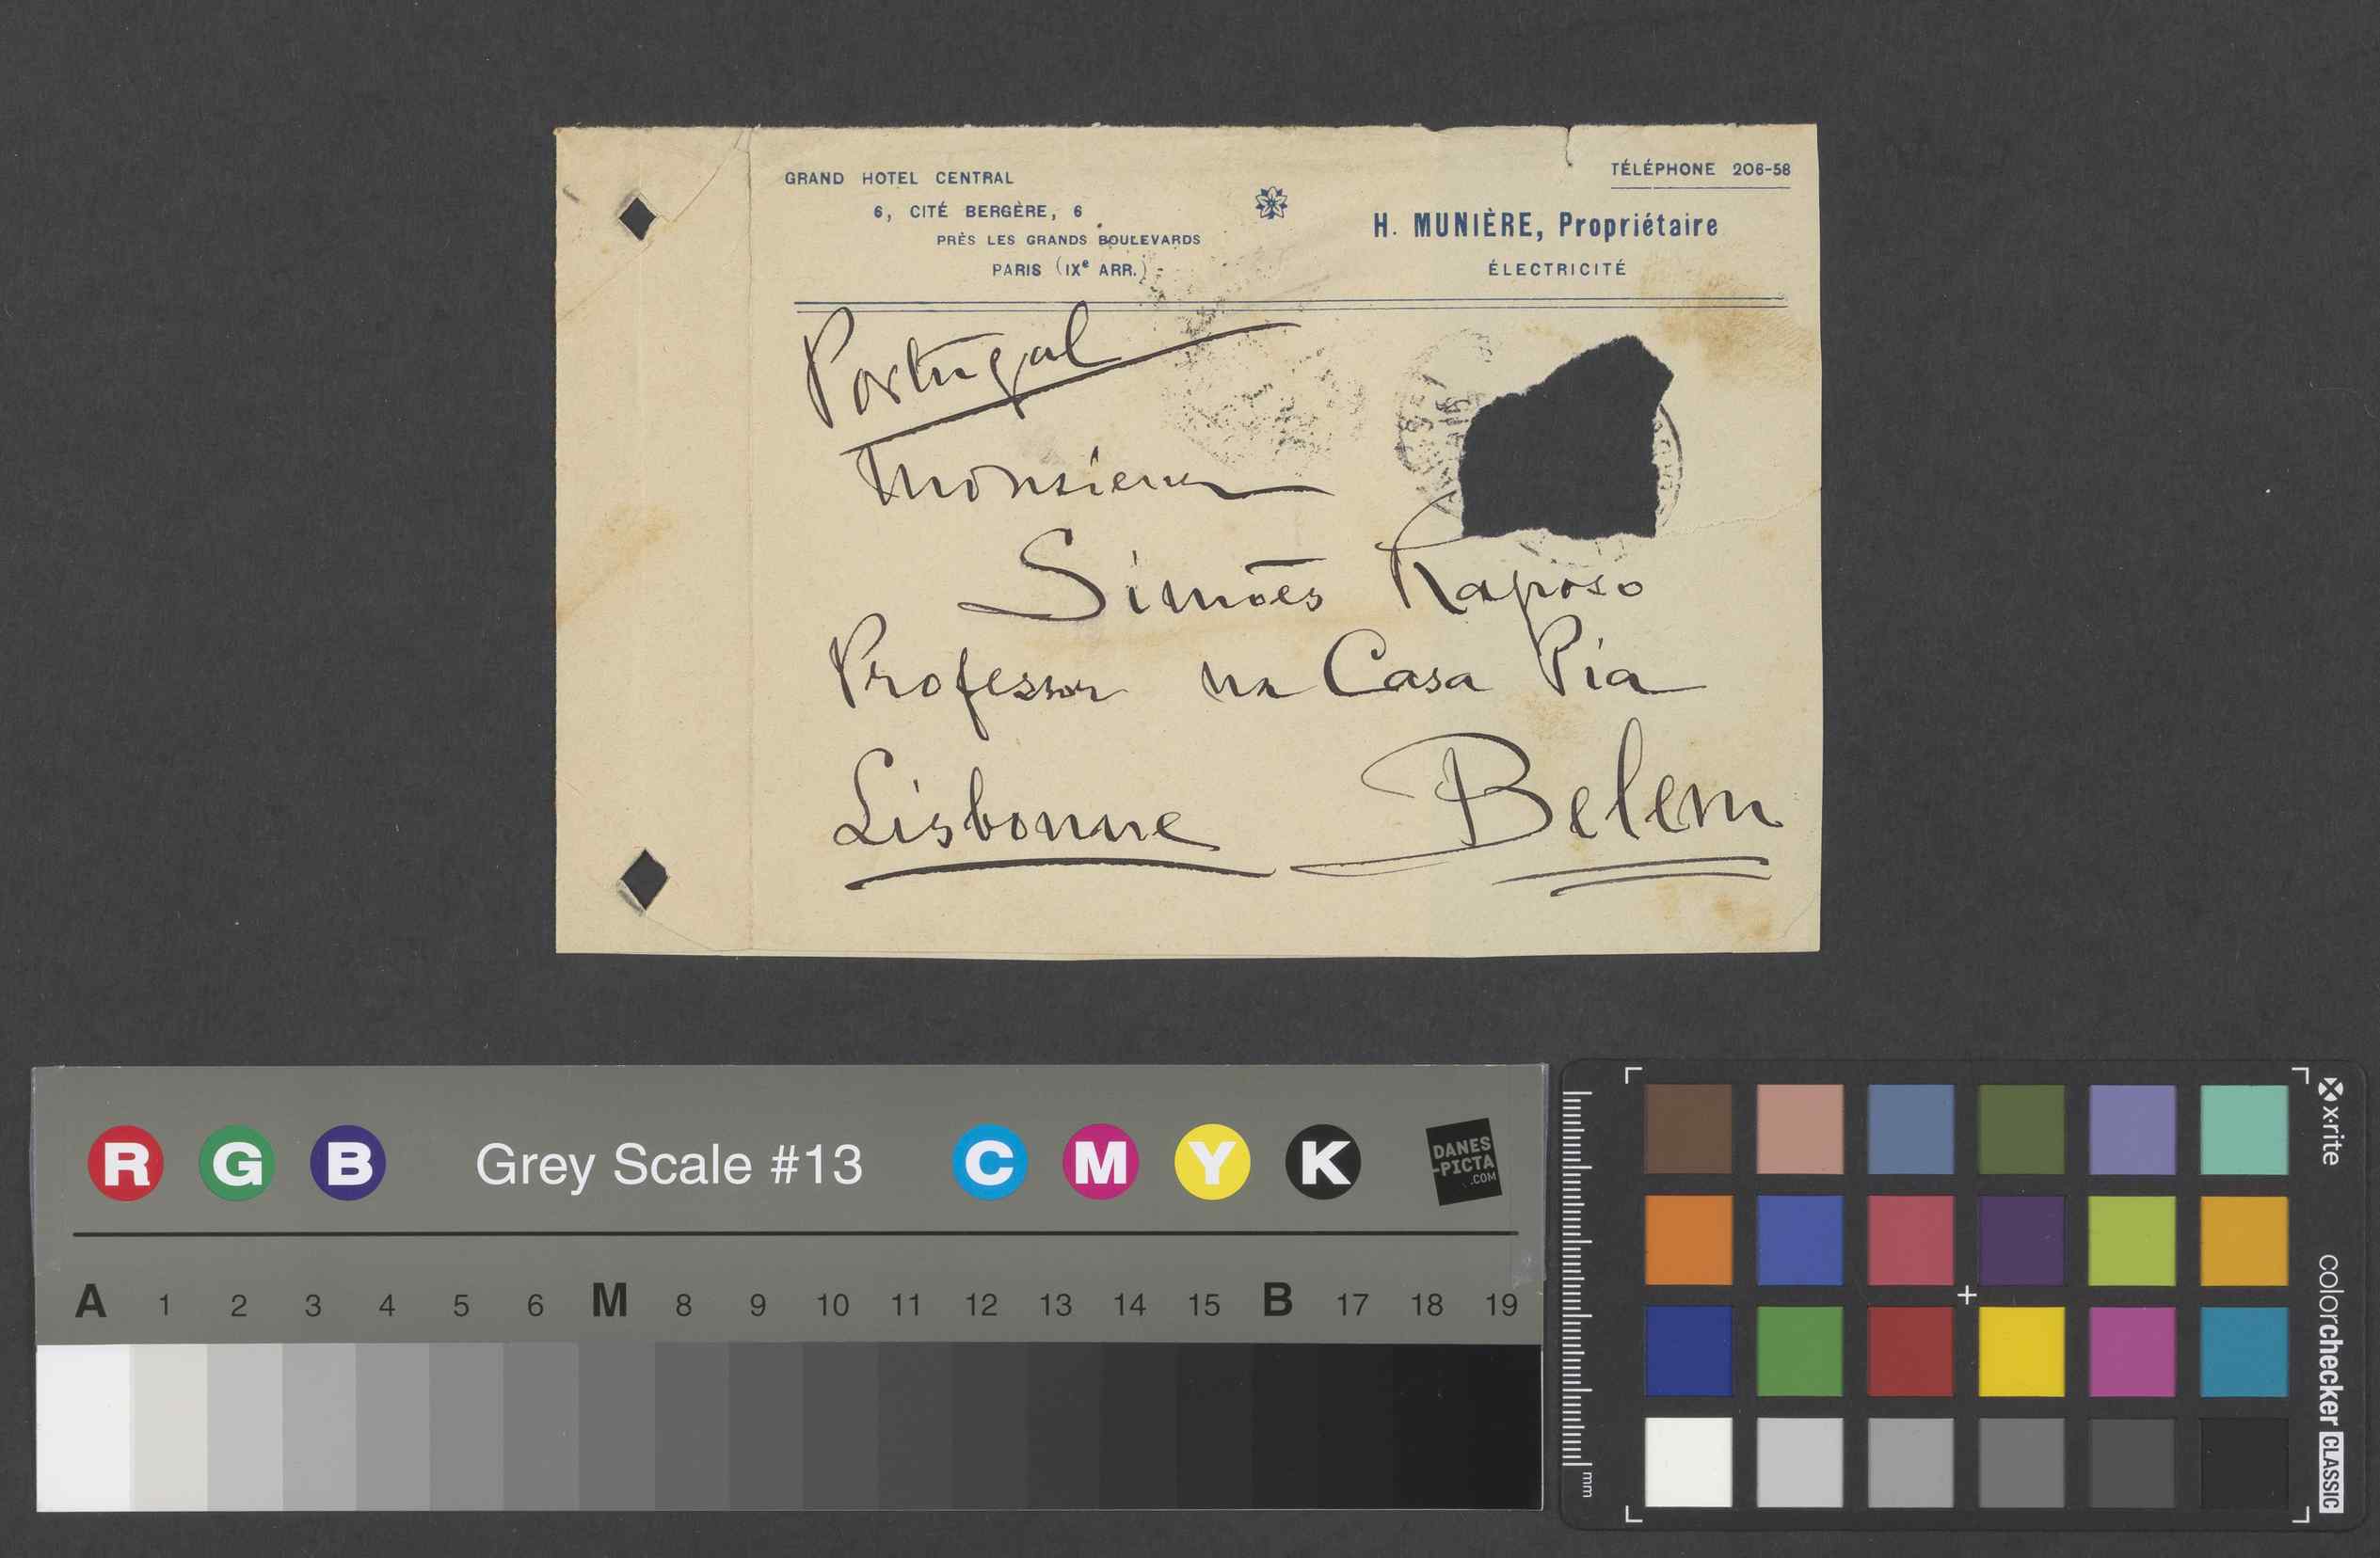 GRAND HOTEL CENTRAL
6, CITÉ BERGÈRE, 6
PRÈS LES GRANDS BOULEVARDS
PARIS (IXe ARR.)
TÉLÉPHONE 206-58
H. MUNIÈRE, Propriétaire
ÉLECTRICITÉ
Portugal
Monsieur
Simões Raposo
Professor na Casa Pia
Lisbonne Belem
R G B Grey Scale #13 C M Y K
DANES
-PICTA
.COM
A 1 2 3 4 5 6 M 8 9 10 11 12 13 14 15 B 17 18 19
x-rite
colorchecker CLASSIC
mm